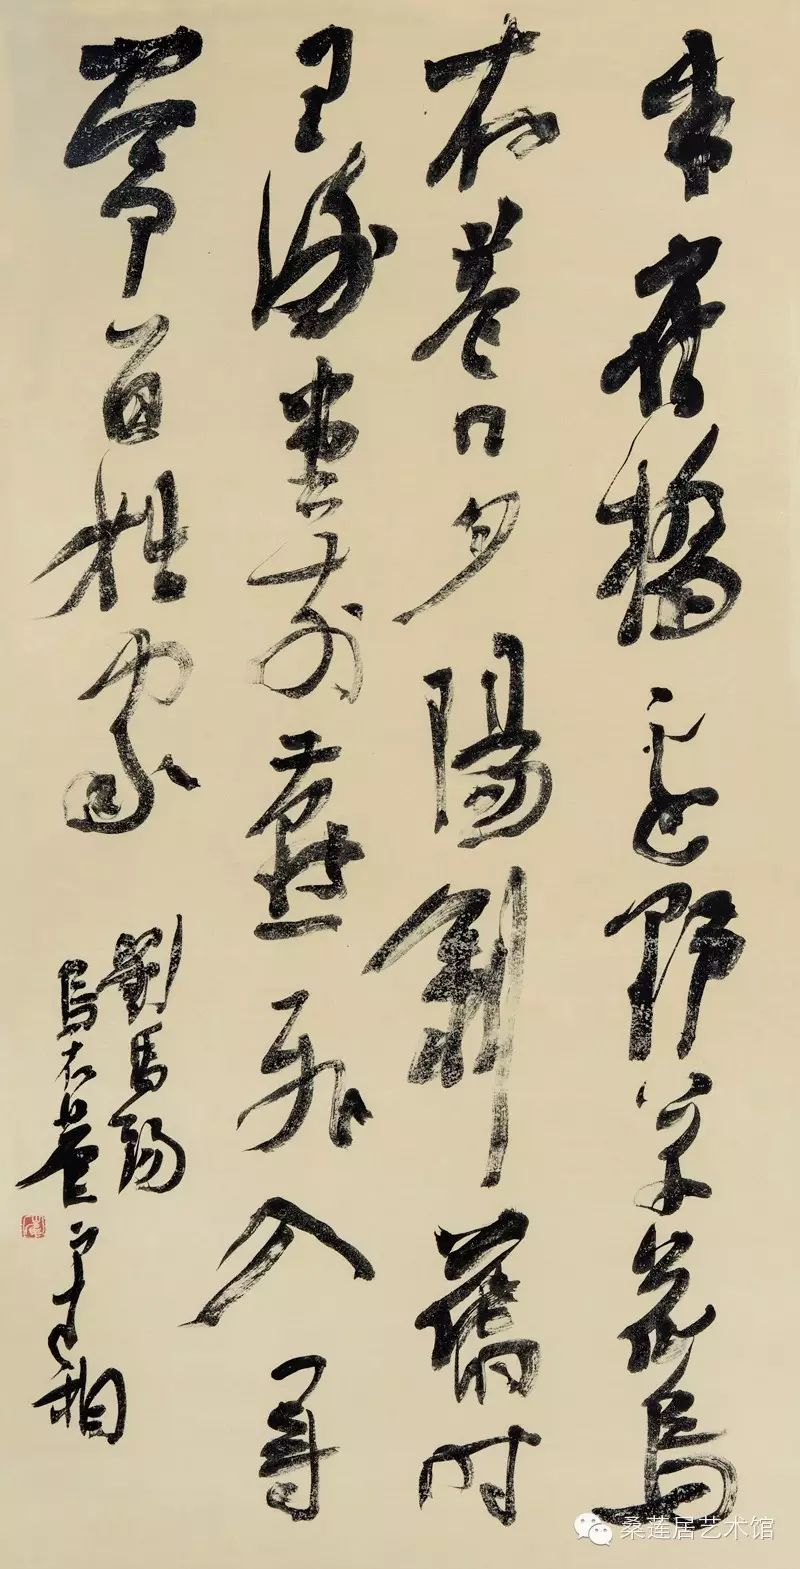 朱雀橋邊野草花烏
衣巷口夕陽斜舊時
王謝堂前燕飛入尋
常百姓家
劉禹錫
烏衣巷
桑莲居艺术馆